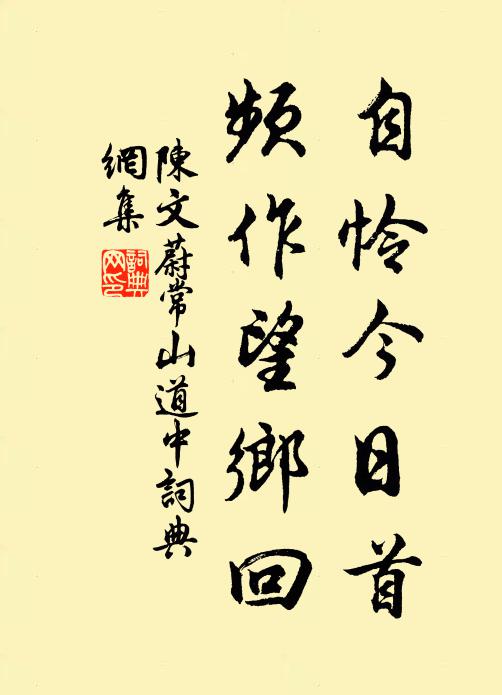 自怜今日首
頻作望鄉回
陳文蔚常山道中詞典
網集
詞典网印